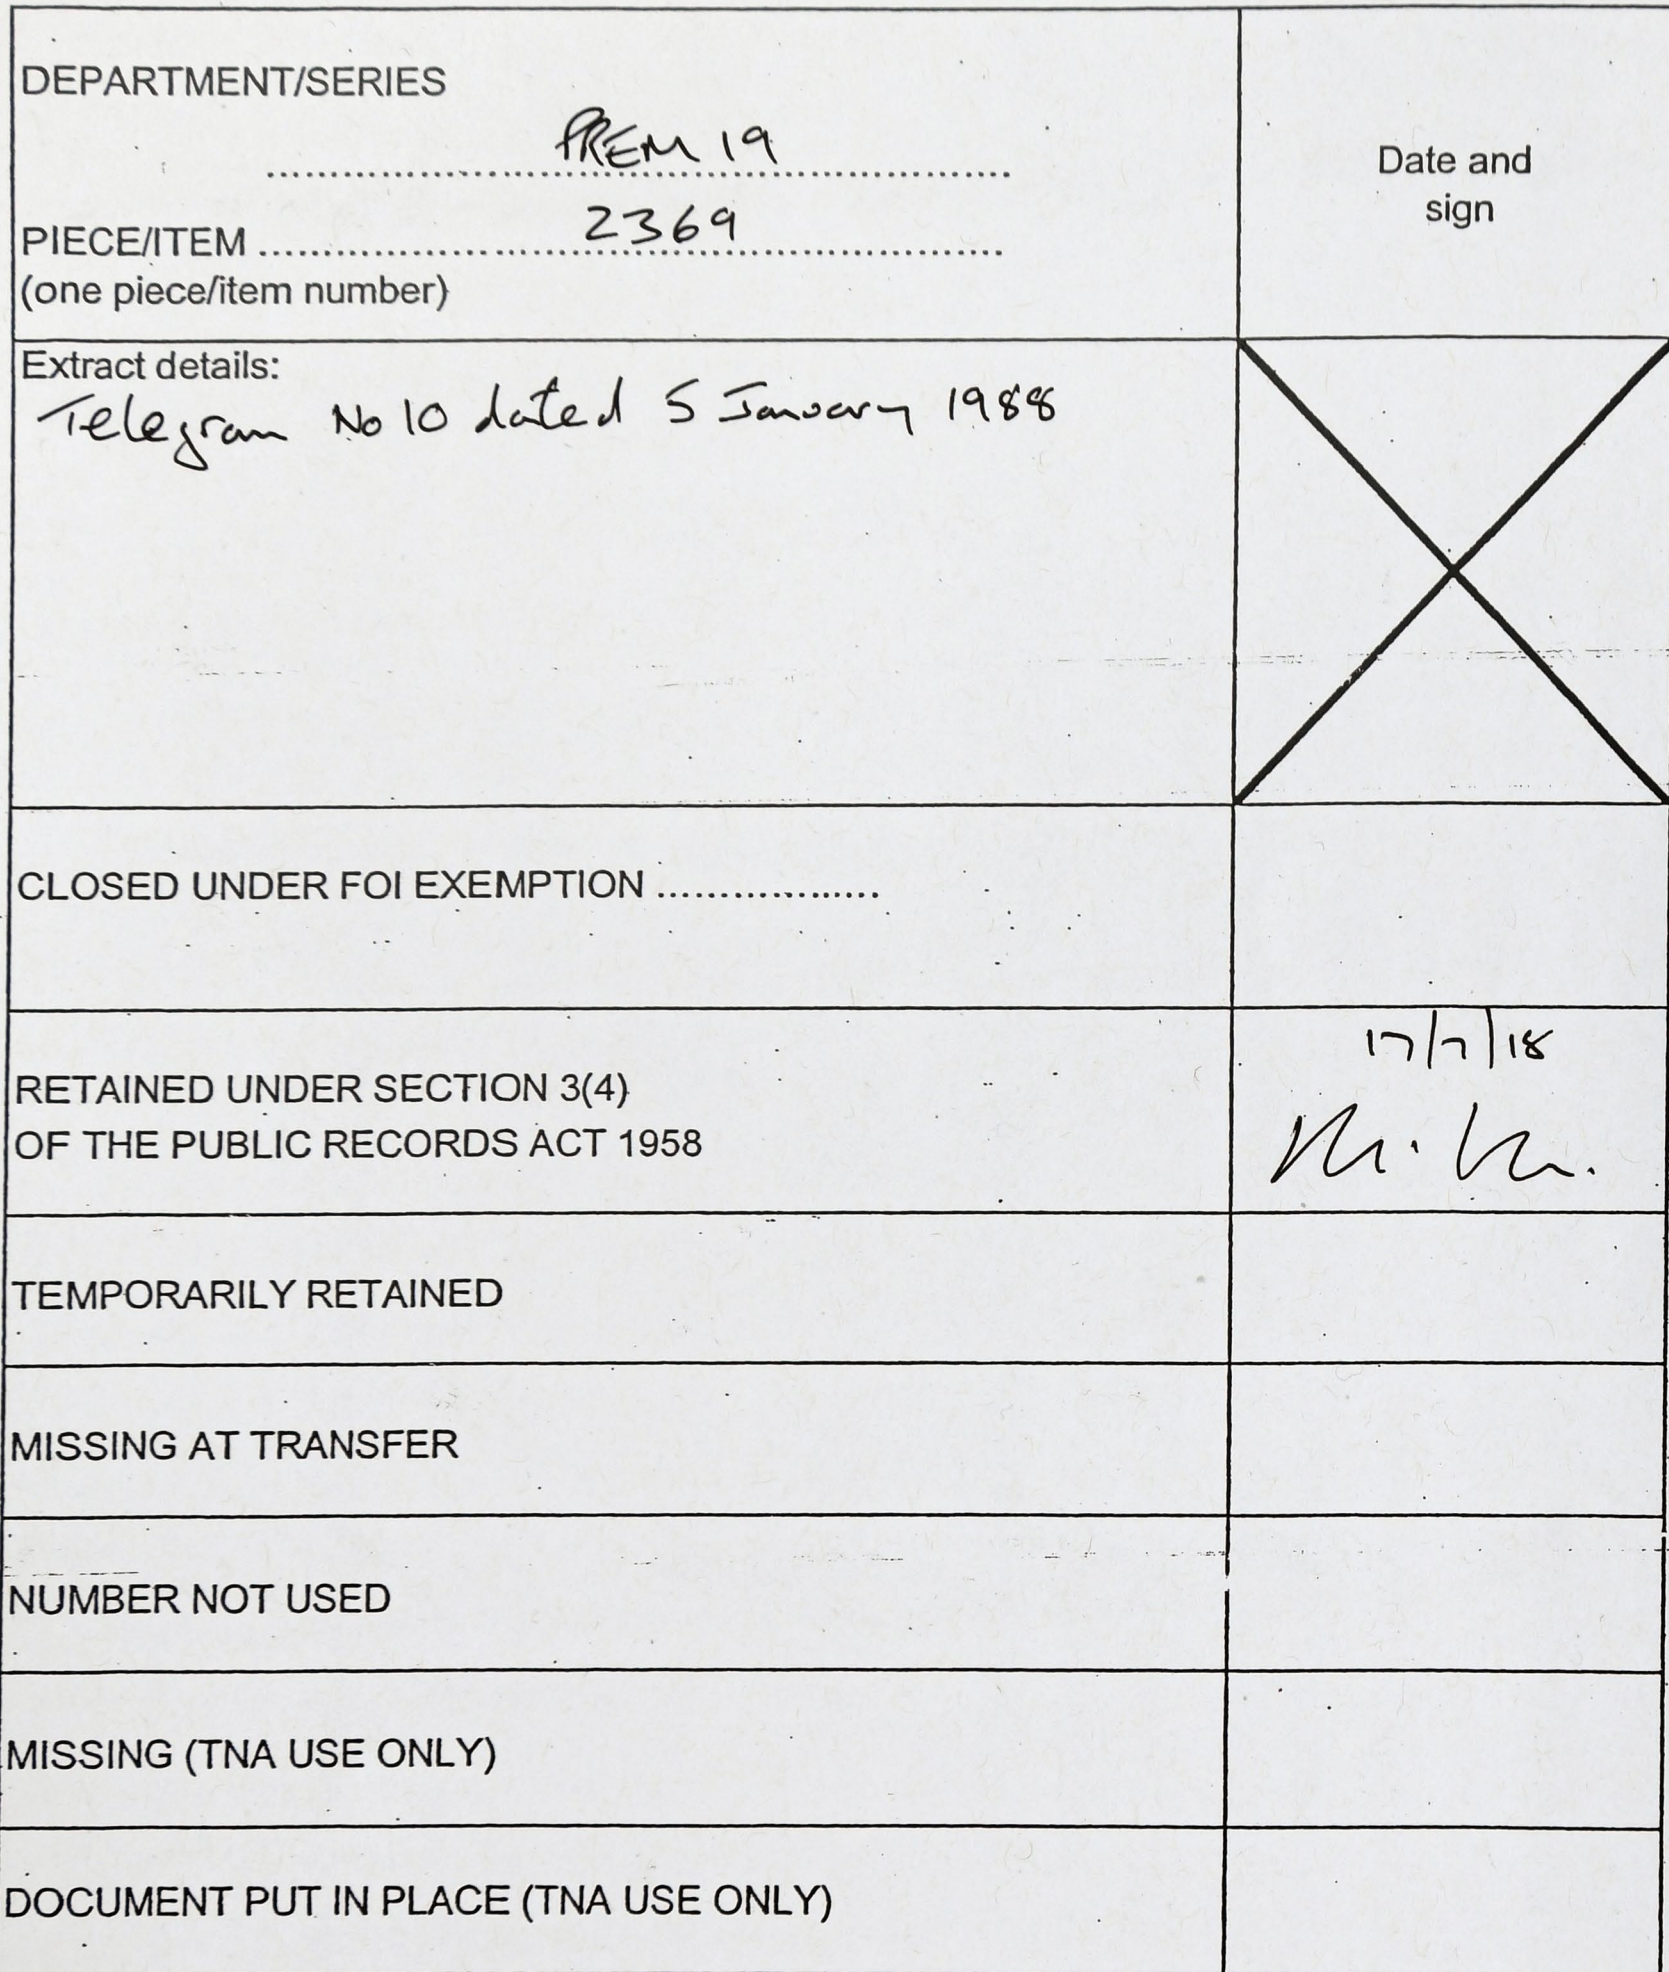 DEPARTMENT/SERIES
PREM 19
Date and
sign
PIECE/ITEM 2369
(one piece/item number)
Extract details:
Telegram No 10 dated 5 January 1988
CLOSED UNDER FOI EXEMPTION ..................
RETAINED UNDER SECTION 3(4)
OF THE PUBLIC RECORDS ACT 1958
17/7/18
TEMPORARILY RETAINED
MISSING AT TRANSFER
NUMBER NOT USED
MISSING (TNA USE ONLY)
DOCUMENT PUT IN PLACE (TNA USE ONLY)